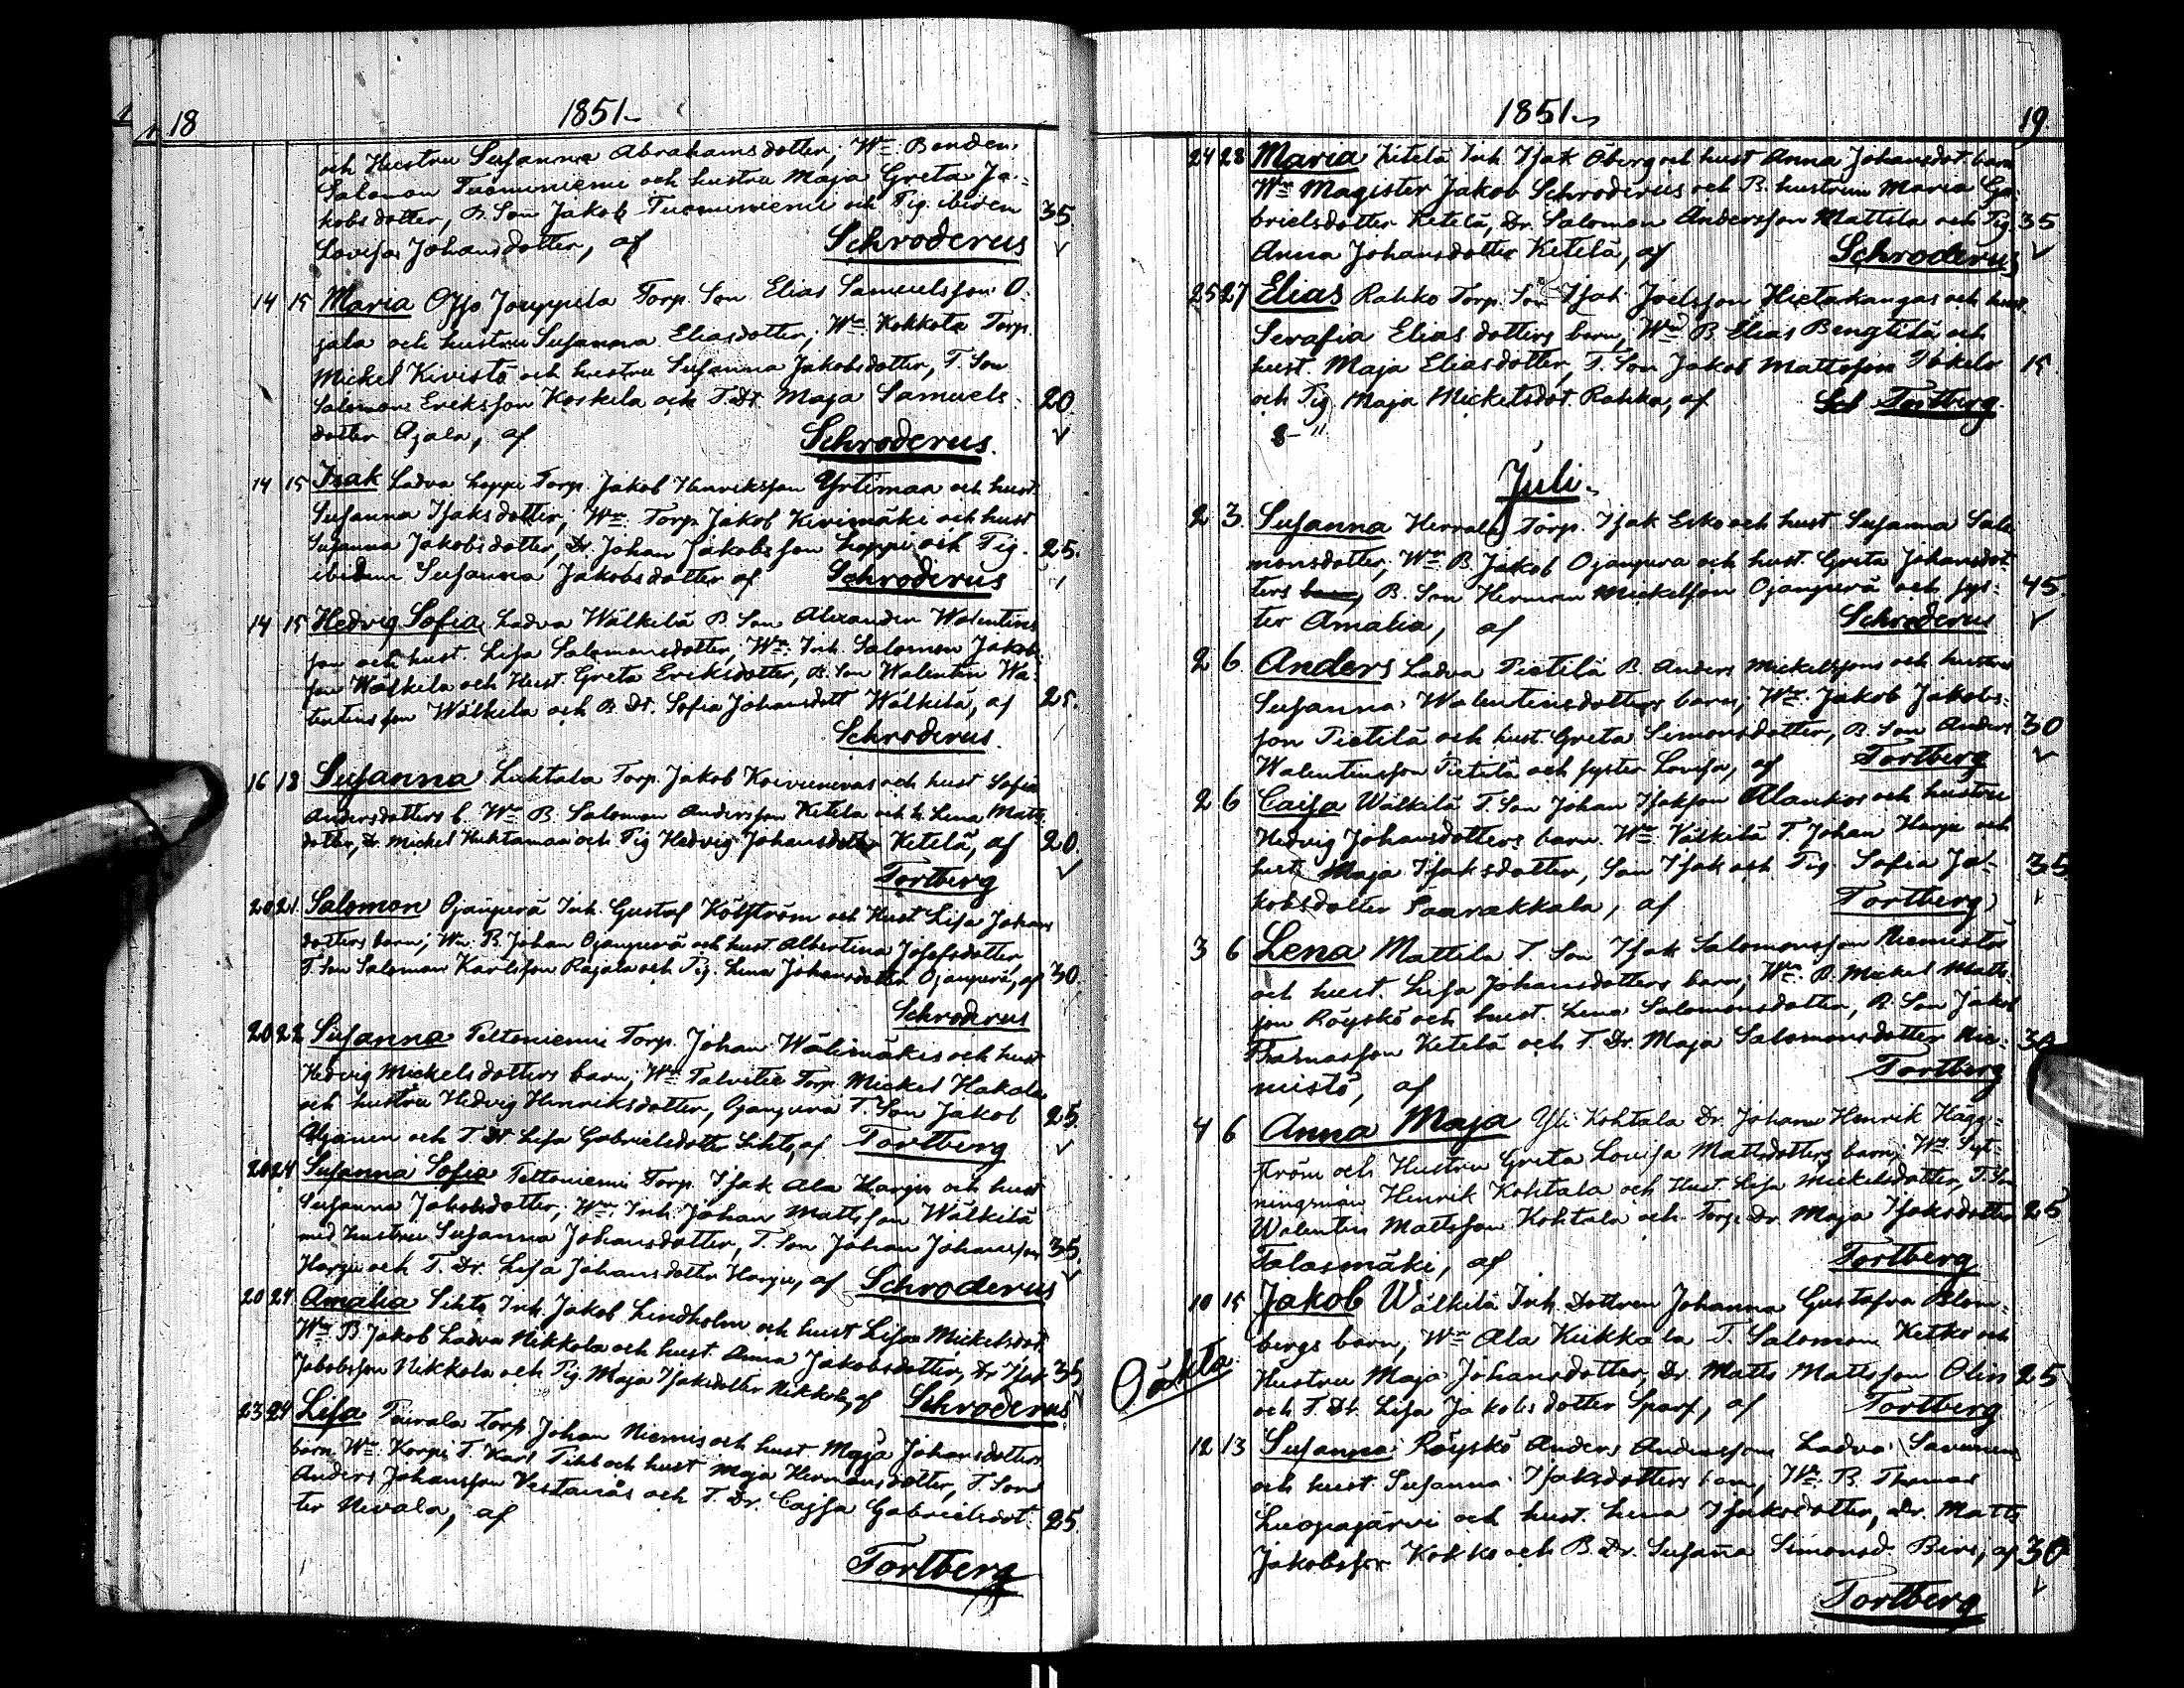 18
1851
och Hustru Susanna Abrahamsdotter; Wn Bonden
Salomon Tuominiemi och hustru Maja Greta Ja-
kobsdotter, B. Son Jakob Tuominiemi och Pig. ibidem 35
Lovisa Johansdotter, af Schroderus
14 15 Maria Ojjo Jouppila Torp. Son Elias Samuelsson O-
jala och hustru Susanna Eliasdotter; Wn Kokkota Torp.
Mickel Kivistö och hustru Susanna Jakobsdotter, T. Son
Salomon Eriksson Koskela och T. Dr. Maja Samuels- 20
dotter Ojala, af Schroderus.
14 15 Isak Ladva Loppi Torp. Jakob Henriksson Yrtimaa och hust.
Susanna Isaksdotter; Wn. Torp. Jakob Kivimäki och hust
Susanna Jakobsdotter, Dr. Johan Jakobsson Loppi och Pig. 25.
ibidem Susanna Jakobsdotter af Schroderus
14 15 Hedvig Sofia, Ladva Wälkilä B Son Alexander Walentins
son och hust. Lisa Salomonsdotter; Wn. Inh. Salomon Jakobs-
son Wälkela och Hust. Greta Eriksdotter, B. Son Walentin Wa-
lentinsson Wälkela och B. Dr. Sofia Johansdott Wälkilä, af 25.
Schroderus.
16 18 Susanna Luhtala Torp. Jakob Koivunevas och hust Sofia
Andersdotters b. Wn B. Salomon Andersson Ketela och h. Lena Matts-
dotter, Dr. Mickel Huhtamaa och Pig Hedvig Johansdotter Ketelä, af 20.
Tortberg
20 21. Salomon Ojanperä Inh. Gustaf Költström och Hust Lisa Johans
dotters barn; Wn. B. Johan Ojanperä och hust. Albertina Josefsdotter,
T. Son Salomon Karlsson Rajala och Pig. Lena Johansdotter Ojanperä, af 30.
Schroderus
20 22 Susanna Peltoniemi Torp. Johan Wälimäkis och hust
Hedvig Mickelsdotters barn; Wn Talvitie Torp. Mickel Hakala
och hustru Hedvig Henriksdotter, Ojanperä T. Son Jakob 25.
och T. Dr Lisa Gabrielsdotter Sihto, af Tortberg
20 24 Susanna Sofia Peltoniemi Torp. Isak Ala Harju och hust
Susanna Jakobsdotter; Wn. Inh. Johan Mattsson Wälkilä
med hustru Susanna Johansdotter, T. Son Johan Johansson 35.
Harju och T. Dr. Lisa Johansdotter Harju, af Schroderus
20 24 Amalia Sihto Inh. Jakob Lindholm och hust Lisa Mickelsdot.
Wn B Jakob Ladva Nikkola och hust. Anna Jakobsdotter, Dr Isak 35
Jakobsson Nikkola och Pig. Maja Isaksdotter Nikkola, af Schroderus.
23 24 Lisa Pourala Torp. Johan Niemis och hust Maja Johansdotters
barn. Wn. Korpi T. Karl Pihl och hust Maja Hermansdotter, T. Son
Anders Johansson Vestanås och T. Dr. Cajsa Gabrielsdot- 25.
ter Nevala, af
Tortberg
1851
19.
24 28 Maria Ketelä Inh Isak Öberg och hust Anna Johansdot. barn
Wn Magister Jakob Schroderus och B. hustrun Maria Ga-
brielsdotter Ketelä, Dr. Salomon Andersson Mattila och Pig. 35
Anna Johansdotter Ketelä, af Schroderus
25 27 Elias Rahko Torp. Son Isak Joelsson Hietakangas och hust.
Serafia Eliasdotters barn; Wn B Elias Bengtilä och
hust. Maja Eliasdotter, T. Son Jakob Mattsson Pokela 15
och Pig Maja Mickelsdot. Rahka, af Tortberg.
8 - "
Juli
2 3. Susanna Herrala Torp. Isak Esko och hust Susanna Salo
monsdotter; Wn B. Jakob Ojanpera och hust. Greta Johansdot-
ters barn, B. Son Herman Mickelsson Ojanperä och sys- 45.
ter Amalia, af Schroderus
2 6. Anders Ladva Pietilä B. Anders Mickelssons och hustru
Susanna Walentinsdotters barn; Wn. Jakob Jakobs-
son Pietilä och hust. Greta Simonsdotter, B. Son Anders 30
Walentinsson Pietilä och syster Lovisa, af Tortberg
2 6 Caisa Wälkilä T. Son Johan Isakson Alankos och hustru
Hedvig Johansdotters barn. Wn. Välkilä T. Johan Harju och
hust. Maja Isaksdotter, Son Isak och Pig. Sofia Ja- 35
kobsdotter Saarakkala, af Tortberg
3 6 Lena Mattila T. Son Isak Salomonsson Niemistö
och hust. Lisa Johansdotters barn; Wn. B. Mickel Matts-
son Röyskö och hust. Lena Salomonsdotter, B. Son Jakob
Thomasson Ketelä och T. Dr. Maja Salomonsdotter Nie- 30
mistö, af Tortberg
4 6 Anna Maja Yli Kohtala Dr. Johan Henrik Hägg-
ström och Hustru Greta Lovisa Mattsdotters barn; Wn Sytt-
ningsman Henrik Kohtala och Hust. Lisa Mickelsdotter, T. Son
Walentin Mattsson Kohtala och Torp. Dr Maja Isaksdotter 25
Talasmäki, af Tortberg
10 15 Jakob Wälkilä Inh. Dottren Johanna Gustafva Blom-
bergs barn, Wn Ala Kukkala T. Salomon Ketko och
Oäkta.
Hustru Maja Johansdotter, Dr. Matts Mattsson Olin 25
och T. Dr. Lisa Jakobsdotter Sparf, af Tortberg
12 13 Susanna Röyskö Anders Anderssons Ladva Savunen
och hust. Susanna Isaksdotters barn, Wn. B. Thomas
Luopajärvi och hust. Lena Isaksdotter, Dr. Matts
Jakobsson Kokko och B. Dr. Susanna Simonsd. Birs, af 30
Tortberg